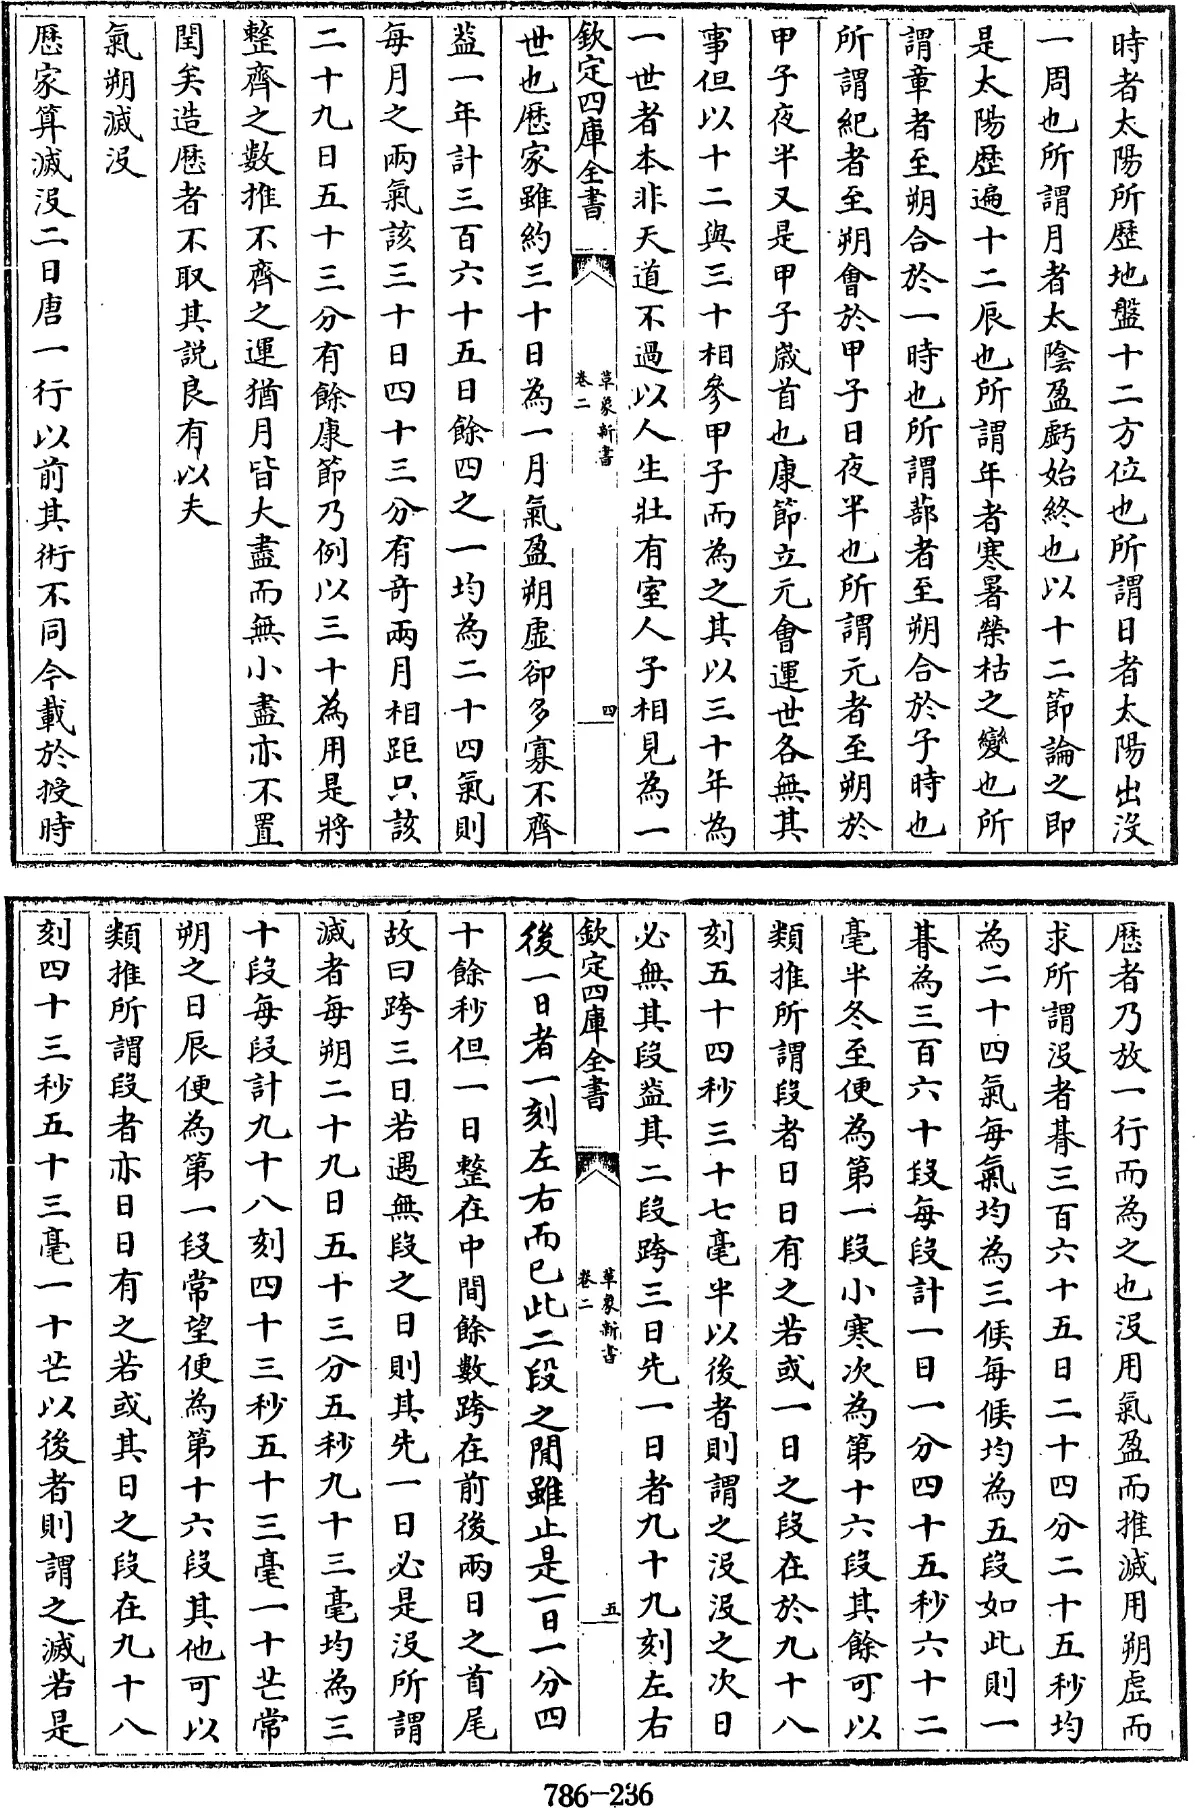 時者太陽所歴地盤十二方位也所謂日者太陽出沒
一周也所謂月者太陰盈虧始終也以十二節論之即
是太陽歴遍十二辰也所謂年者寒暑榮枯之變也所
謂章者至朔合於一時也所謂蔀者至朔合於子時也
所謂紀者至朔會於甲子日夜半也所謂元者至朔於
甲子夜半又是甲子歳首也康節立元會運世各無其
事但以十二與三十相參甲子而為之其以三十年為
一世者本非天道不過以人生壯有室人子相見為一
欽定四庫全書
草象新書
卷二
四
世也歴家雖約三十日為一月氣盈朔虛卻多寡不齊
葢一年計三百六十五日餘四之一均為二十四氣則
每月之兩氣該三十日四十三分有奇兩月相距只該
二十九日五十三分有餘康節乃例以三十為用是將
整齊之數推不齊之運猶月皆大盡而無小盡亦不置
閏矣造歴者不取其説良有以夫
氣朔滅沒
歴家算滅沒二日唐一行以前其術不同今載於授時
歴者乃放一行而為之也沒用氣盈而推滅用朔虛而
求所謂沒者朞三百六十五日二十四分二十五秒均
為二十四氣每氣均為三候每候均為五段如此則一
朞為三百六十段每段計一日一分四十五秒六十二
毫半冬至便為第一段小寒次為第十六段其餘可以
類推所謂段者日日有之若或一日之段在於九十八
刻五十四秒三十七毫半以後者則謂之沒沒之次日
必無其段葢其二段跨三日先一日者九十九刻左右
欽定四庫全書
草象新書
卷二
五
後一日者一刻左右而已此二段之間雖止是一日一分四
十餘秒但一日整在中間餘數跨在前後兩日之首尾
故曰跨三日若遇無段之日則其先一日必是沒所謂
滅者每朔二十九日五十三分五秒九十三毫均為三
十段每段計九十八刻四十三秒五十三毫一十芒常
朔之日辰便為第一段常望便為第十六段其他可以
類推所謂段者亦日日有之若或其日之段在九十八
刻四十三秒五十三毫一十芒以後者則謂之滅若是
786-236